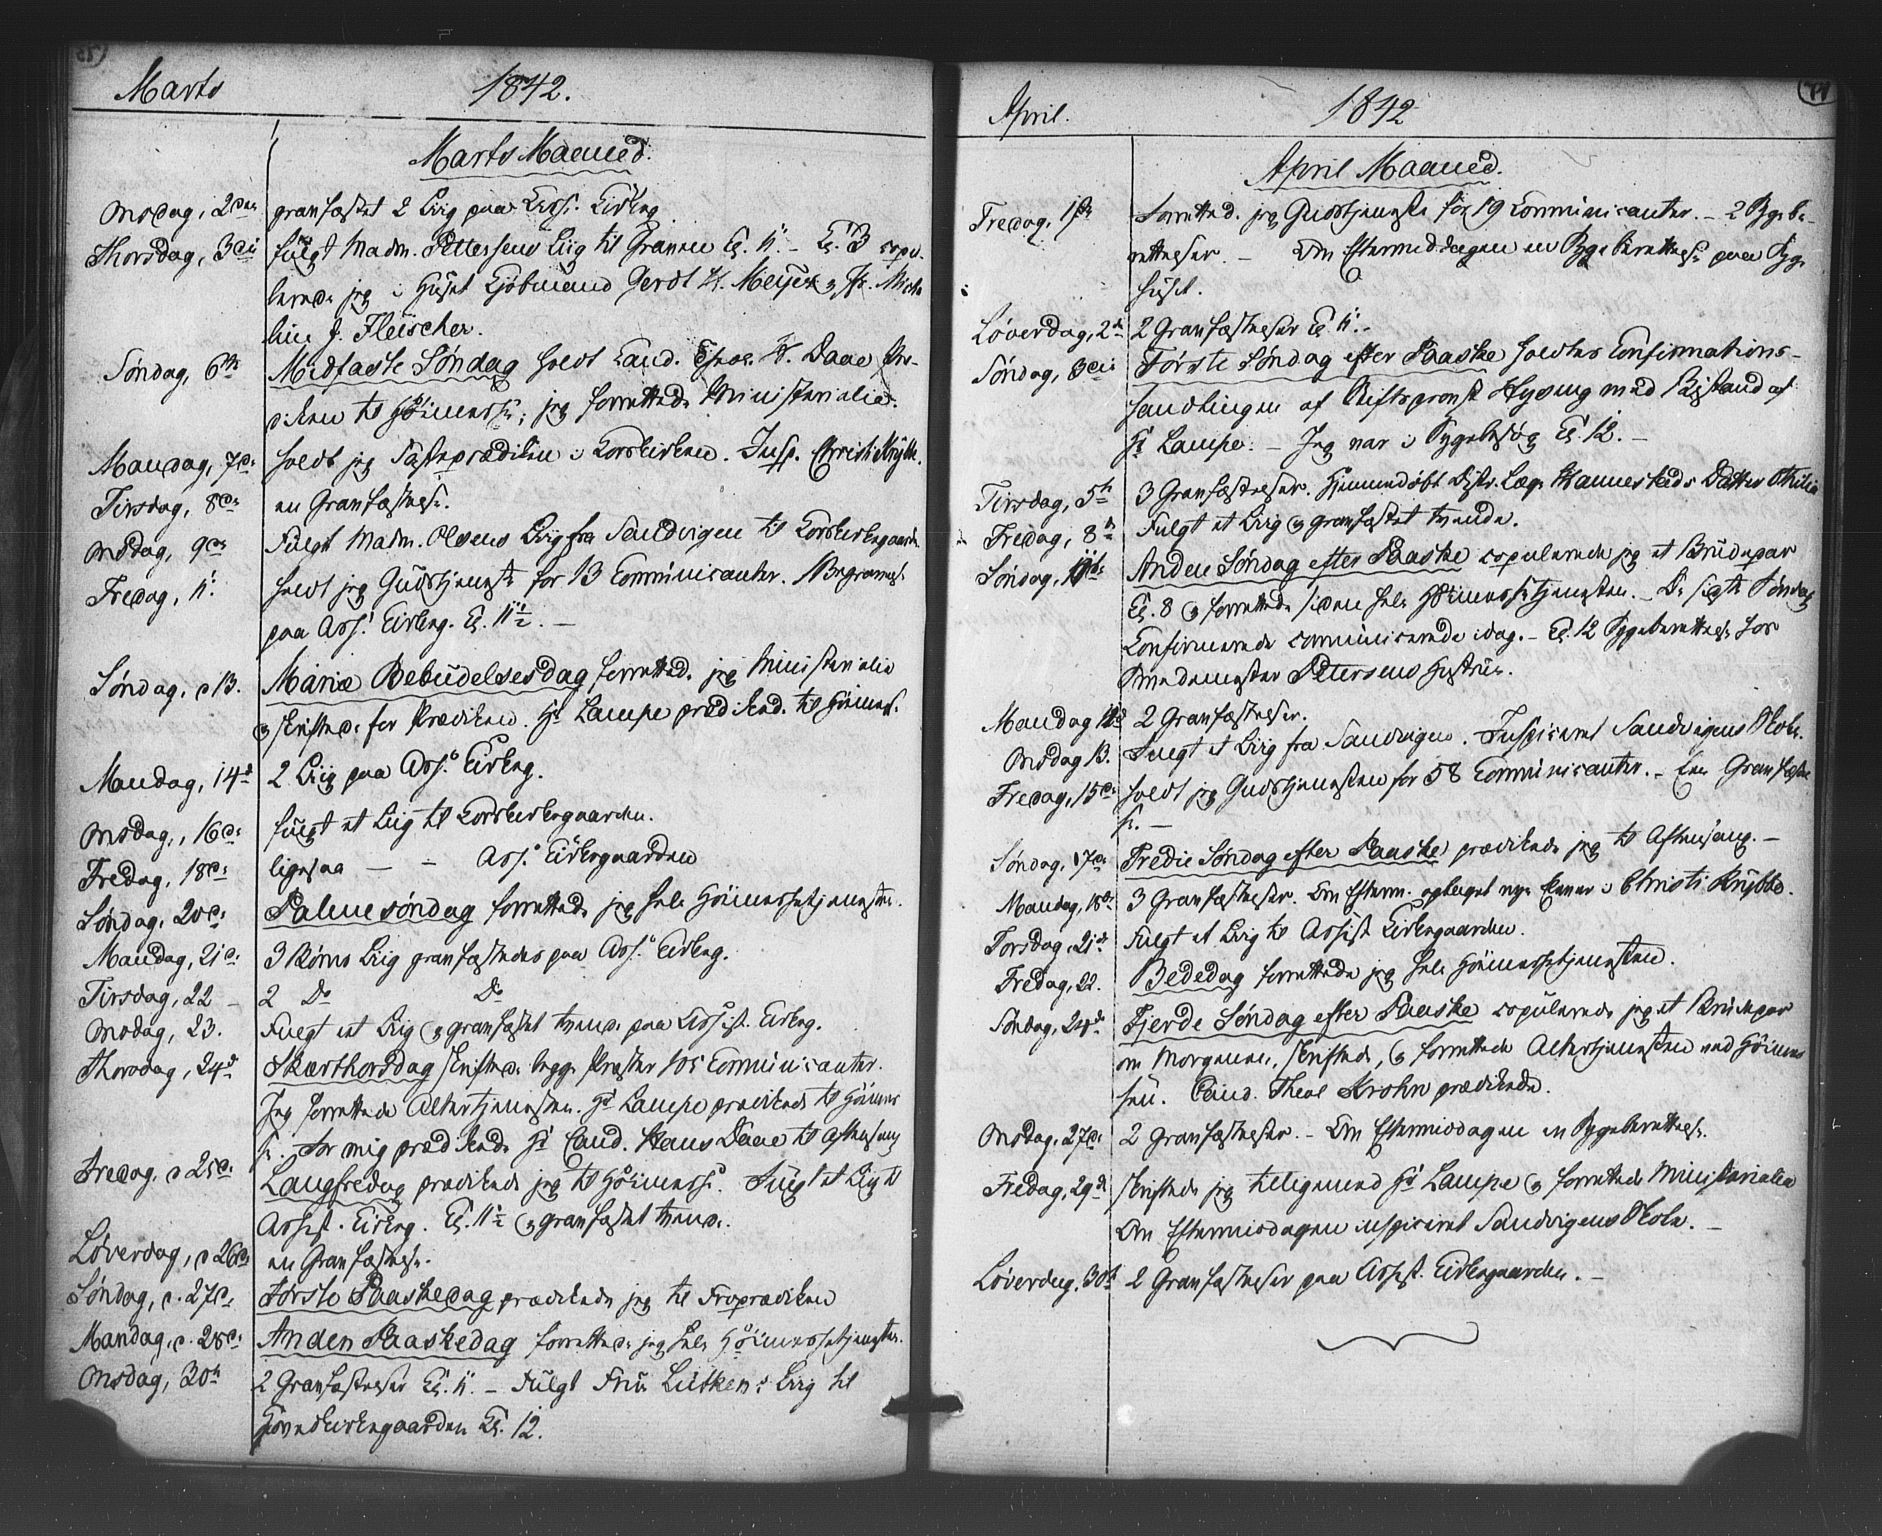 Marts 1842.
Marts Maaned.
Onsdag, 2den gravfæstet 2 Liig paa Assi. Kirkeg.
Thorsdag, 3die fulgt Madm. Pettersens Liig til Graven Kl. 11. – Kl. 3 copu-
lerede jeg i Huset Kjöbmand Gerdt H. Meyer og Fr. Miche-
line J. Fleischer.
Søndag, 6te Midfaste Søndag holdt Cand. H. Daae Præ-
diken til Höimesse, jeg forrettede Ministerialia.
Mandag, 7de holdt jeg Fasteprædiken i Korskirken. Insp. Christi Krybbe.
Tirsdag, 8de en Gravfæstnelse.
Onsdag, 9de Fulgt Madm. Olsens Liig fra Sandvigen til Korskirkegaarden
Fredag, 11. holdt jeg Gudstjeneste for 13 Communicanter. 1 Begravels.
paa Ass. Kirkeg. Kl. 11½. –
Søndag, d 13. Mariæ Bebudelsesdag forrettede jeg Ministerialia
og skriftede før Prædiken. Hr Lampe prædikede til Höimes.
Mandag, 14d 2 Liig paa Ass. Kirkeg.
Onsdag, 16de fulgt et Liig til Korskirkegaarden.
Fredag, 18de ligesaa – – Ass. Kirkegaarden
Søndag, 20de Palmesøndag forrettede jeg hele Höimessetjenesten.
Mandag, 21de 3 Liig gravfæstedes paa Ass. Kirkeg.
Tirsdag, 22 – 2 Do Do
Onsdag, 23. Fulgt et Liig og gravfæstet tvende paa Assist. Kirkeg.
Thorsdag, 24d Skærthorsdag skriftede begge Præster 105 Communicanter.
Jeg forrettede Altertjenesten. Hr Lampe prædikede til Höimes-
se. For mig prædikede Hr Cand. Hans Daae til Aftensang
Fredag, d 25de Langfredag prædikede jeg til Höimesse. Fulgt et Liig til
Assist. Kirkeg. Kl. 11½ og gravfæstet tvende.
Løverdag, d 26de en Gravfæstnelse.
Søndag, d. 27de Første Paaskedag prædikede jeg til Froprædiken
Mandag, d. 28de Anden Paaskedag forrettede jeg hele Höimessetjenesten.
Onsdag, 30te 2 Gravfæstnelser Kl. 11. – Fulgt Frue Lütkens Liig til
Domkirkegaarden Kl. 12.
April. 1842
April Maaned.
Fredag, 1ste Forrettede jeg Gudstjeneste for 19 Communicanter. – 2 Sygebe-
rettelser. – Om Eftermiddagen en Sygeberettelse paa Syge-
huset.
Løverdag, 2d 2 Gravfæstnelser Kl. 11. –
Søndag, 3die Første Søndag efter Paaske holdtes Confirmations-
handlingen af Stiftsprovst Hysing med Bistand af
Hr Lampe. – Jeg var i Sygebesøg Kl. 12. –
Tirsdag, 5te 3 Gravfæstnelser. Hjemmedøbt Distr. Læge Kannestads Datter Othilia
Fredag, 8de Fulgt et Liig og gravfæstet tvende.
Søndag, Anden Søndag efter Paaske copulerede jeg et Brudepar
Kl. 8 og forrettede siden hele Höimessetjenesten. – De sidste Søndag
Confirmerede communicerede idag. – Kl. 12 Sygeberettelse hos
Petersens Hustru.
Mandag 2 Gravfæstnelser.
Onsdag 13. Fulgt et Liig fra Sandvigen. Inspiceret Sandvigens Skole.
Fredag, 15de holdt jeg Gudstjenesten for 58 Communicanter. – Een Gravfæstnel-
se. –
Søndag, 17de Tredie Søndag efter Paaske prædikede jeg til Aftensang. –
Mandag, 18de 3 Gravfæstnelser. Om Efterm. nye Elever i Christi Krybbe.
Torsdag, 21de Fulgt et Liig til Assist Kirkegaarden.
Fredag, 22. Bededag forrettede jeg hele Höimessetjenesten.
Søndag, 24de Fjerde Søndag efter Paaske copulerede jeg et Brudepar
om Morgenen, skriftede, og forrettede Altertjenesten ved Höimes-
sen. Cand. Theol Krohn prædikede.
Onsdag, 27de 2 Gravfæstnelser. – Om Eftermiddagen en Sygeberettelse.
Fredag, 29de skriftede jeg tilligemed Hr Lampe og forrettede Ministerialia
Om Eftermiddagen inspiceret Sandvigens Skole. –
Løverdag, 30te 2 Gravfæstnelser paa Assist. Kirkegaarden. –